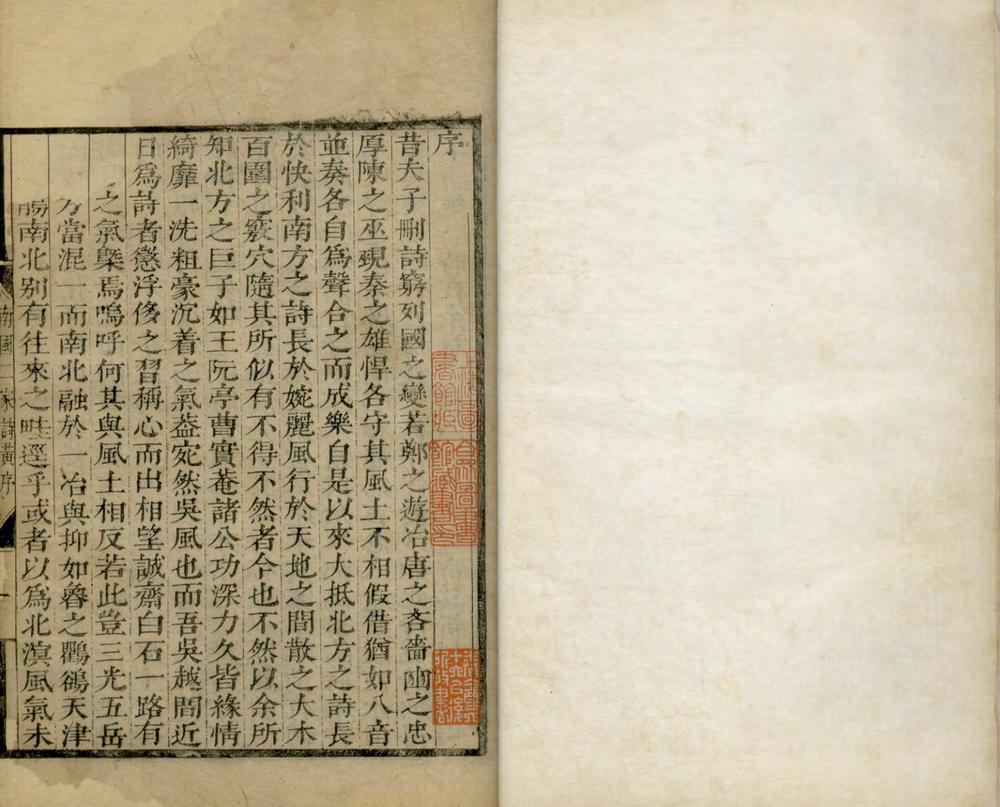 序
昔夫子刪詩窮列國之變若鄭之遊冶唐之吝嗇豳之忠
厚陳之巫覡秦之雄悍各守其風土不相假借猶如八音
並奏各自爲聲合之而成樂自是以來大抵北方之詩長
於快利南方之詩長於婉麗風行於天地之間散之大木
百圍之竅穴隨其所似有不得不然者今也不然以余所
知北方之巨子如王阮亭曹實菴諸公功深力久皆緣情
綺靡一洗粗豪沉着之氣葢宛然吳風也而吾吳越間近
日爲詩者懲浮侈之習稱心而出相望誠齋白石一路有
之氣槩焉嗚呼何其與風土相反若此豈三光五岳
方當混一而南北融於一冶與抑如魯之鸜鵒天津
鵑南北别有往來之畦逕乎或者以爲北溟風氣未
南國二家詩黃序